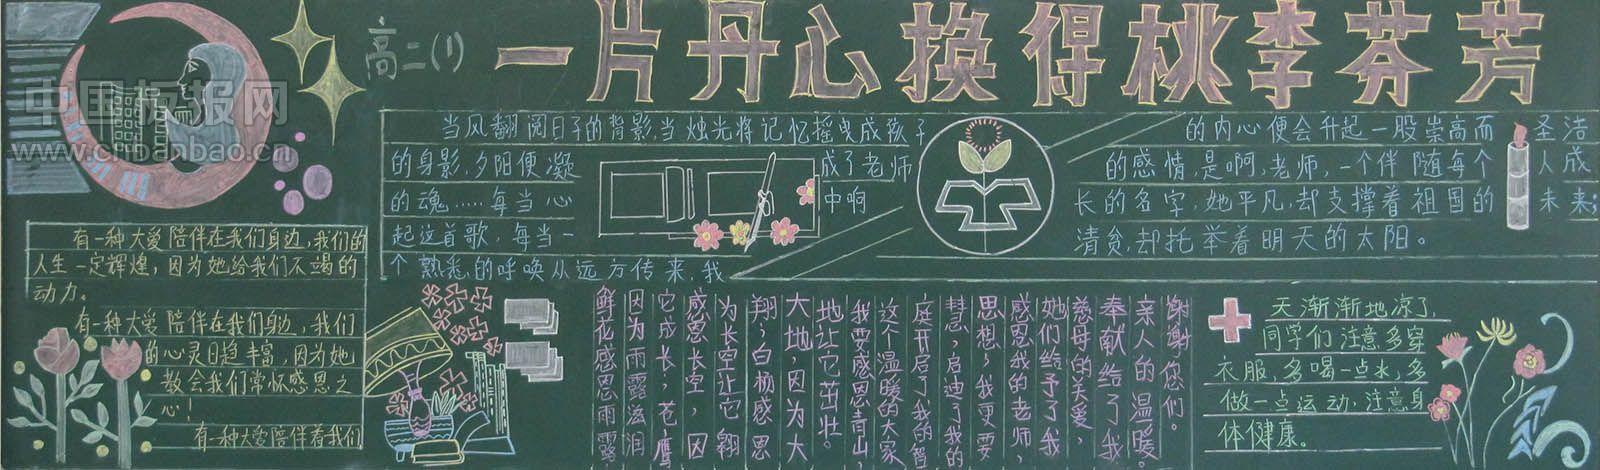 中国板报网
www.chbanbao.cn
高二(1)
一片丹心换得桃李芬芳
有一种大爱陪伴在我们身边,我们的
人生一定辉煌,因为她给我们不竭的
动力。
有一种大爱陪伴在我们身边,我们
的心灵日趋丰富,因为她
教会我们常怀感恩之
心!
有一种大爱陪伴着我们
当风翻阅日子的背影,当烛光将记忆摇曳成孩子
的身影,夕阳便凝 成了老师
的魂……每当心 中啊
起这首歌,每当一
个熟悉的呼唤从远方传来,我
的内心便会升起一股崇高而 圣洁
的感情,是啊,老师,一个伴随每个 人成
长的名字,她平凡,却支撑着祖国的 未来;
清贫,却托举着明天的太阳。
鲜花感恩雨露,
因为雨露滋润
它成长;苍鹰
感恩长空,因
为长空让它翱
翔;白杨感恩
大地,因为大
地让它茁壮。
我要感恩青山,
这个温暖的大家
庭开启了我的智
慧,启迪了我的
思想;我更要
感恩我的老师,
她们给予了我
慈母的美爱,
奉献给了我
亲人的温暖。
谢谢您们。
天渐渐地凉了,
同学们注意多穿
衣服,多喝一点水,多
做一点运动,注意身
体健康。